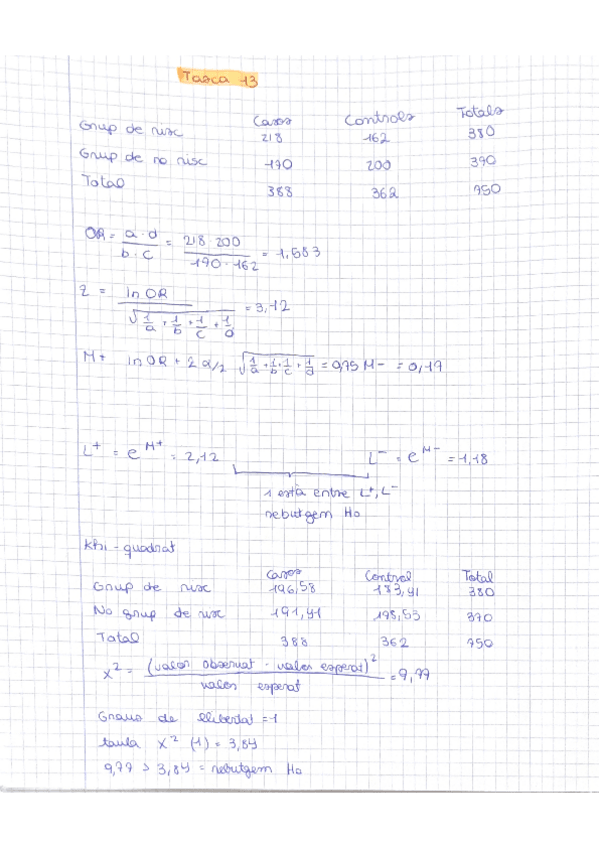 Tasca 13
Casos Controls Totals
Grup de risc 218 162 380
Grup de no risc 170 200 390
Total 388 362 750
OR = a·d / b·c = 218·200 / 190·162 = 1,583
z = ln OR / √(1/a + 1/b + 1/c + 1/d) = 3,12
M+ ln OR + z α/2 √(1/a + 1/b + 1/c + 1/d) = 0,75 M- = 0,17
L+ = e^M+ = 2,12 L- = e^M- = 1,18
1 està entre L+, L-
rebutgem Ho
Khi-quadrat
Casos Control Total
Grup de risc 196,58 183,41 380
No grup de risc 191,41 178,53 370
Total 388 362 750
x² = (valor observat - valor esperat)² / valor esperat = 9,77
Graus de llibertat = 1
taula x² (1) = 3,84
9,77 > 3,84 = rebutgem Ho